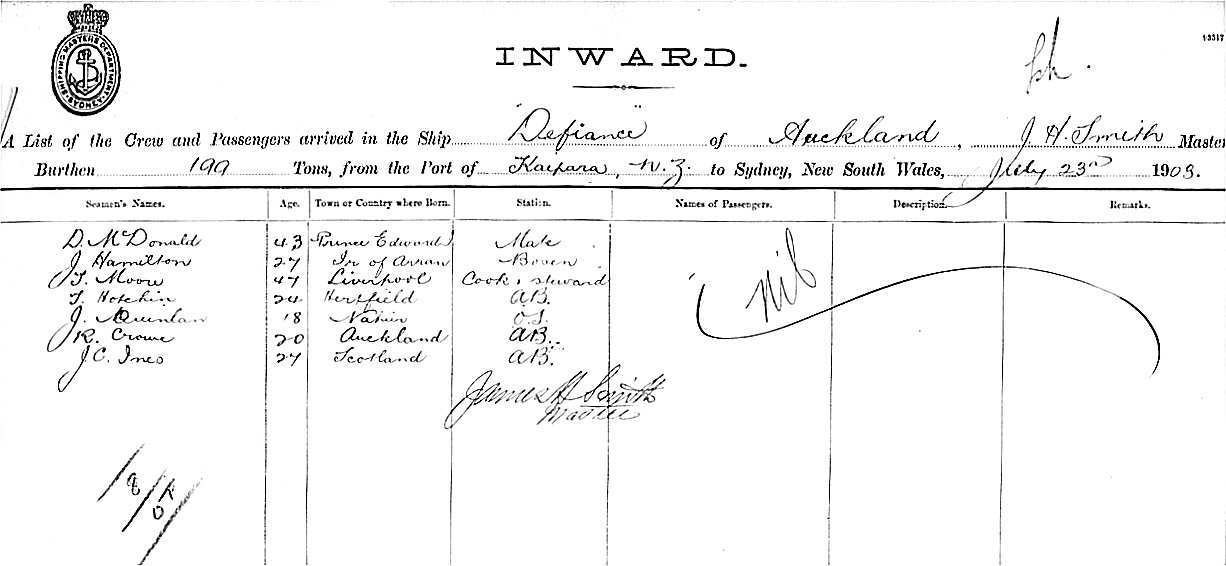 SHIPPING MASTERS DEPARTMENT
SYDNEY
13517
INWARD.
A List of the Crew and Passengers arrived in the Ship "Defiance" of Auckland, J. H. Smith Master
Burthen 199 Tons, from the Port of Kaipara, N.Z. to Sydney, New South Wales, July 23rd 1903.
Seamen's Names. Age. Town or Country where Born. Station. Names of Passengers. Description. Remarks.
D. McDonald 43 Prince Edward Mate
J. Hamilton 27 Ir of Arran Bosen
T. Moore 47 Liverpool Cook & steward
T. Hotchin 24 Hertfield A.B.
Nil
J. Quinlan 18 Napier O.S.
R. Crowe 20 Auckland A.B.
J. C. Ines 27 Scotland A.B.
James H Smith
Master